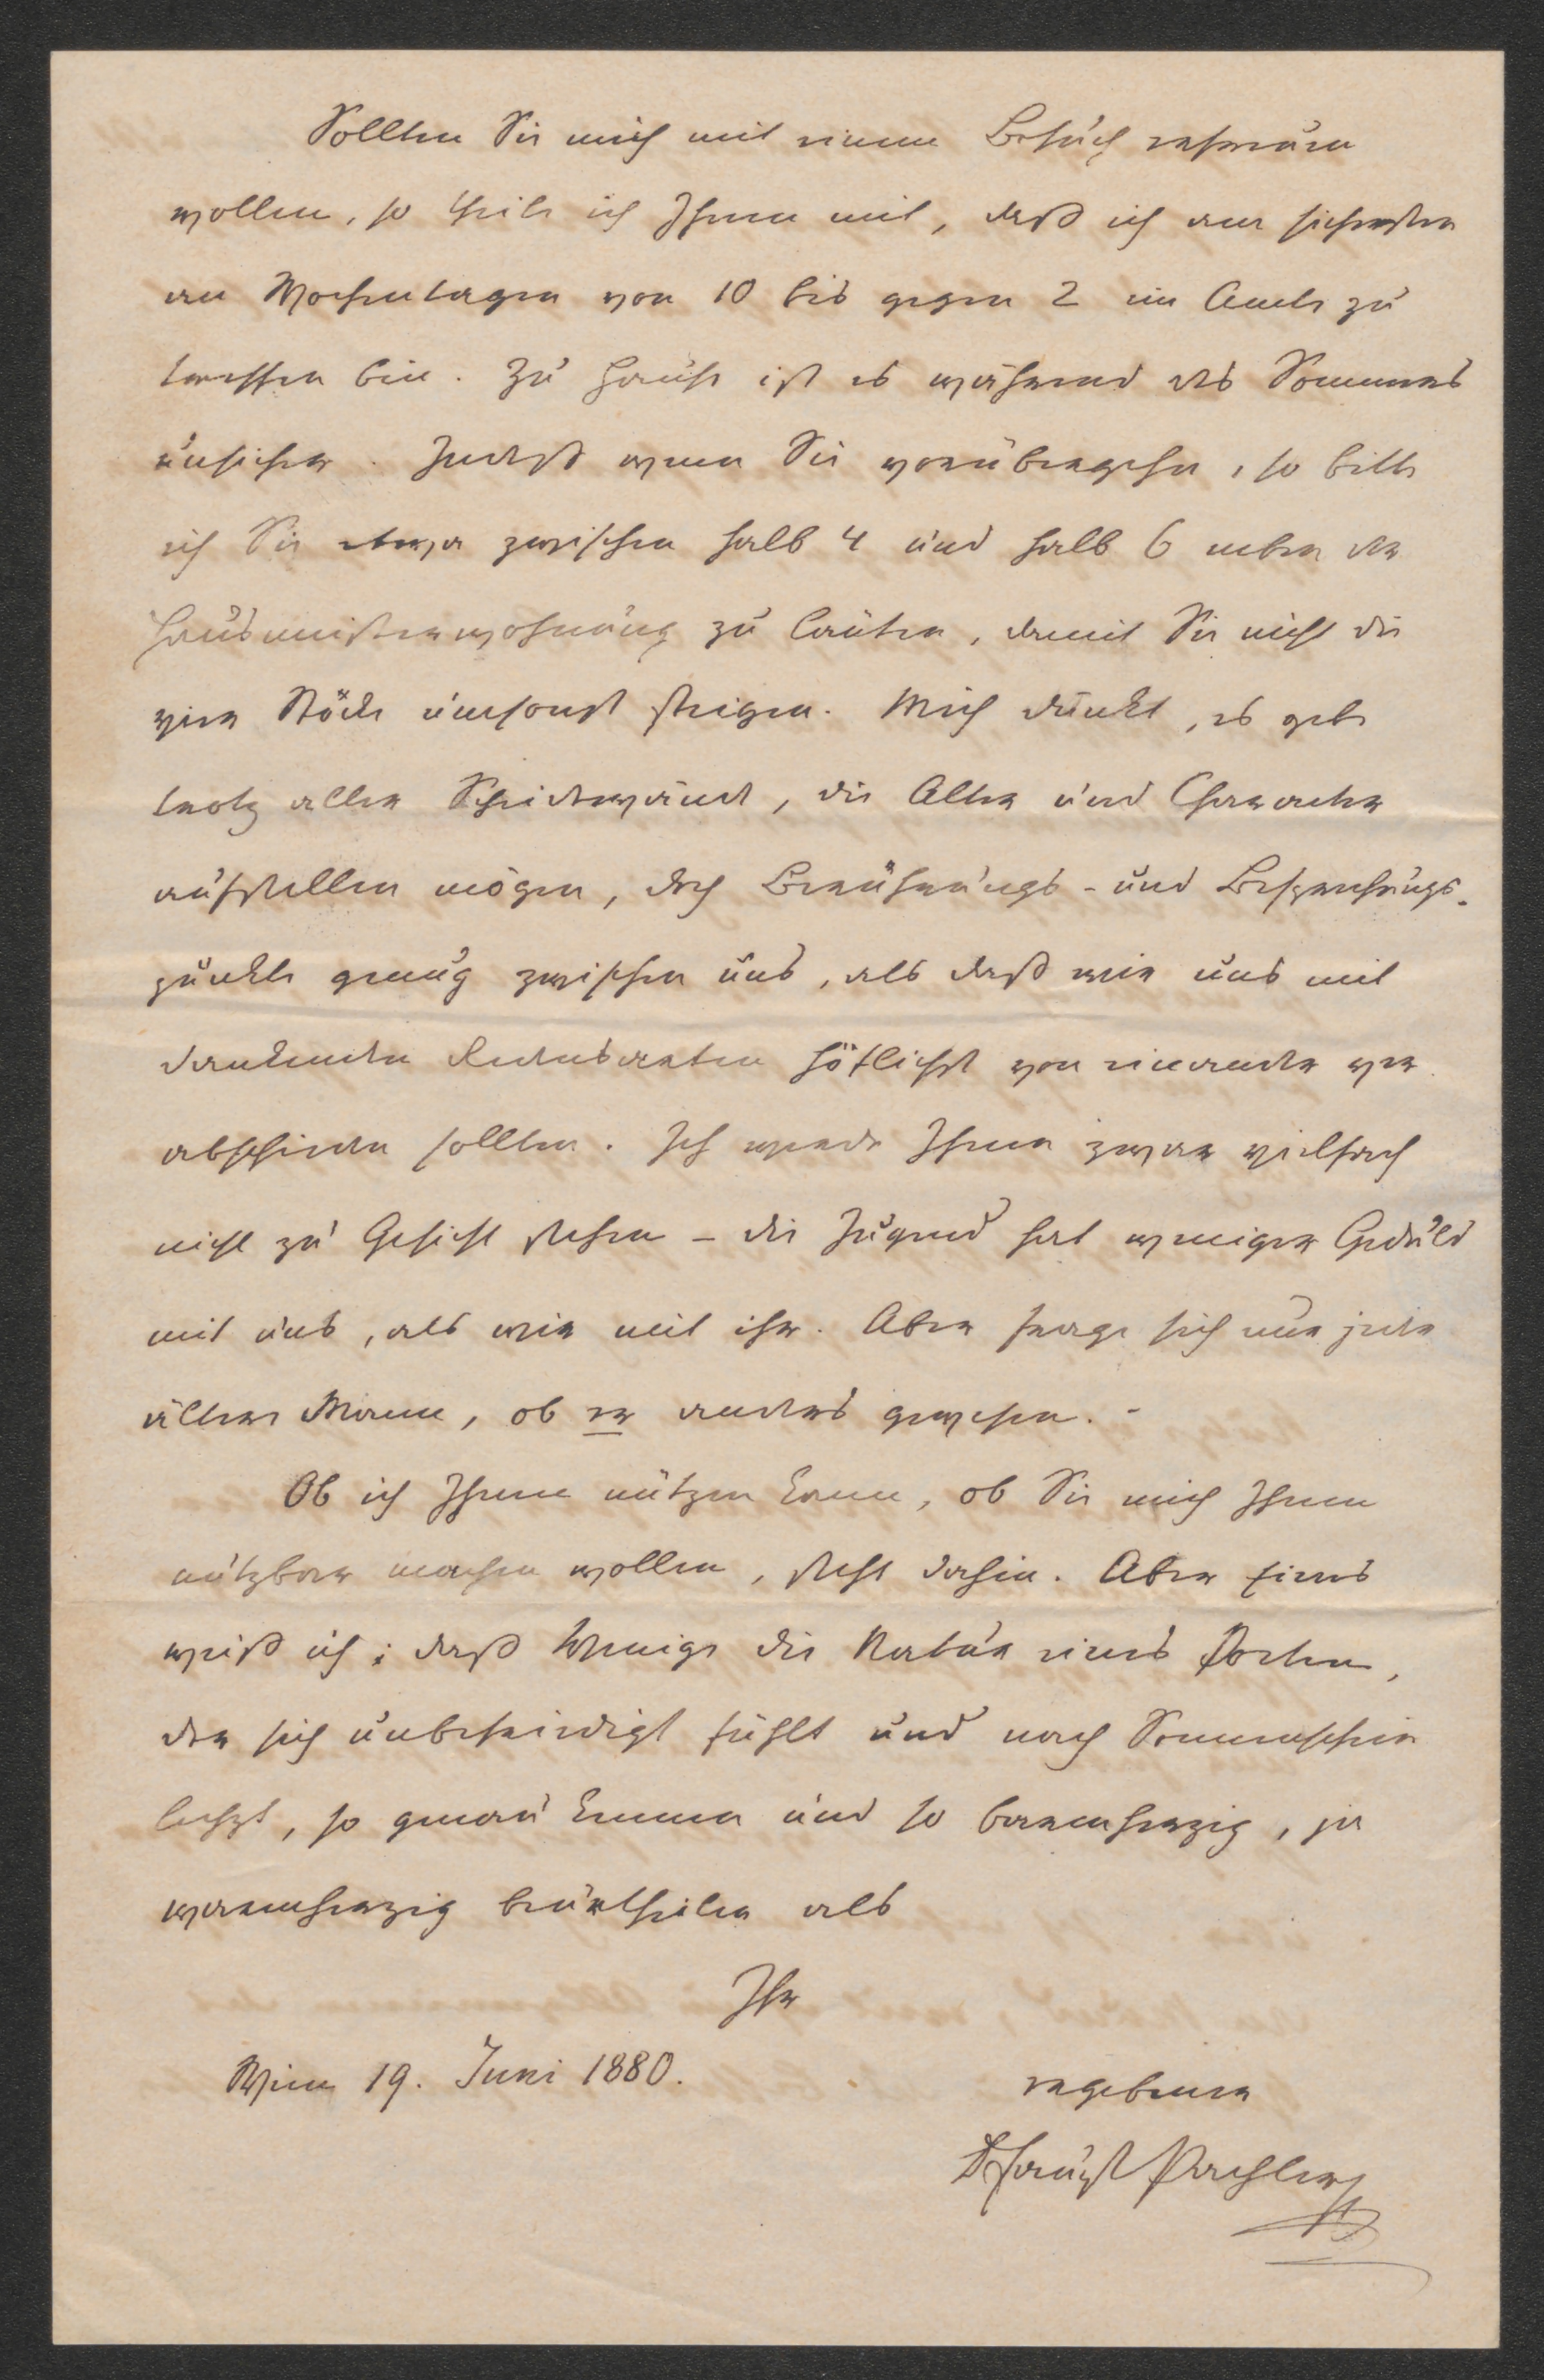 Sollten Sie mich mit einem Besuch erfreuen
wollen, so theile ich Ihnen mit, daß ich am sichersten
an Wochentagen von 10 bis gegen 2 im Amte zu
treffen bin. Zu Hause ist es während des Sommers
unsicher. Indeß wenn Sie vorübergehn, so bitte
ich Sie etwa zwischen halb 4 und halb 6 neben der
Hausmeisterwohnung zu läuten, damit Sie nicht die
vier Stöcke umsonst steigen. Mich dünkt, es gebe
trotz aller Scheidewände, die Alter und Charakter
aufstellen mögen, doch Berührungs- und Besprechungs-
punkte genug zwischen uns, als daß wir uns mit
dankenden Redensarten höflichst von einander ver
abschieden sollten. Ich werde Ihnen zwar vielfach
nicht zu Gesicht stehen – die Jugend hat weniger Geduld
mit uns, als wir mit ihr. Aber frage sich nur jeder
ältere Mann, ob er anders gewesen. -
Ob ich Ihnen nützen kann, ob Sie mich Ihnen
nützbar machen wollen, steht dahin. Aber Eines
weiß ich: daß Wenige die Natur eines Poeten,
der sich unbefriedigt fühlt und nach Sonnenschein
lechzt, so genau kennen und so barmherzig, ja
warmherzig beurtheilen als
Ihr
Wien 19. Juni 1880.
ergebener
Dr Faust Pachler